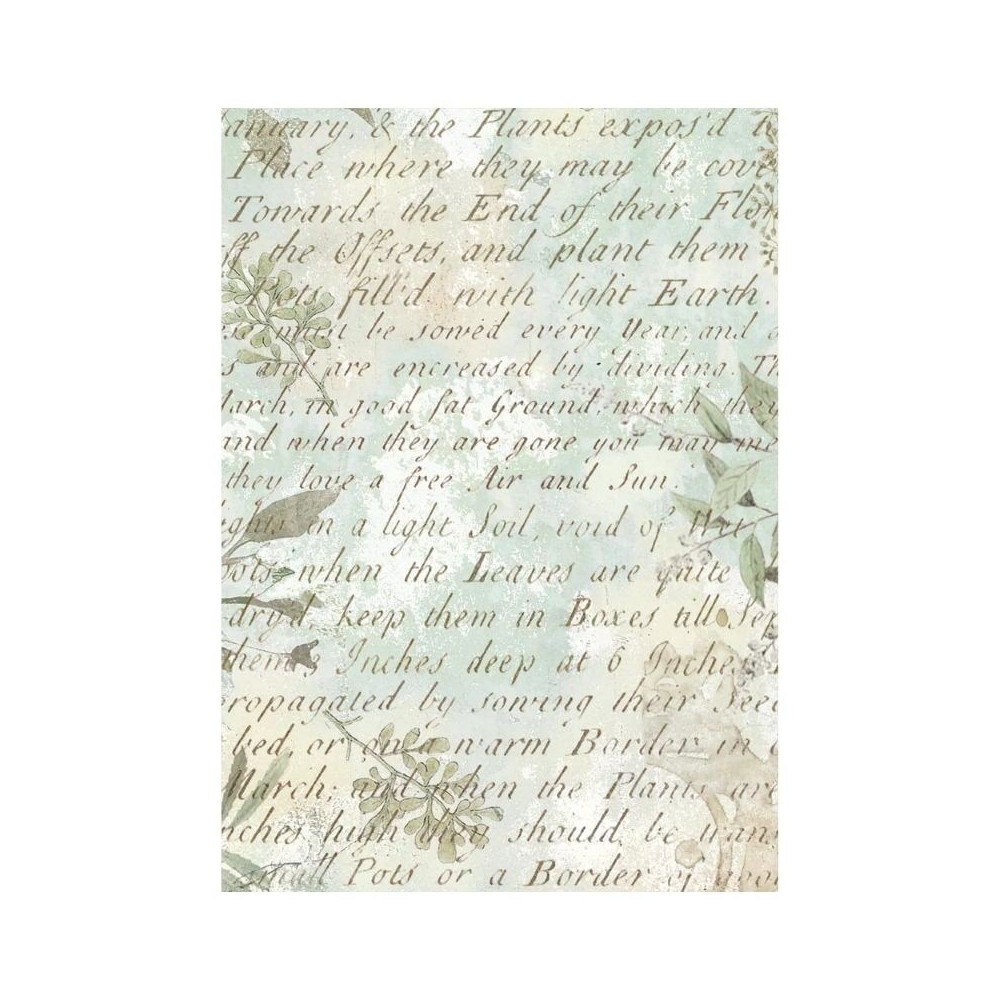 anuary, & the Plants expos'd t
Place where they may be cove
Towards the End of their Flow
ff the Offsets, and plant them
Pots fill'd with light Earth.
must be sowed every Year, and
s and are encreased by dividing. Th
March, in good fat Ground, which they
and when they are gone you may me
they love a free Air and Sun.
ights in a light Soil, void of Wet
oots when the Leaves are quite
dry'd, keep them in Boxes till Sep
them 3 Inches deep at 6 Inches
propagated by sowing their Seed
bed, or on a warm Border in
March; and when the Plants are
nches high they should be trans
small Pots or a Border of good